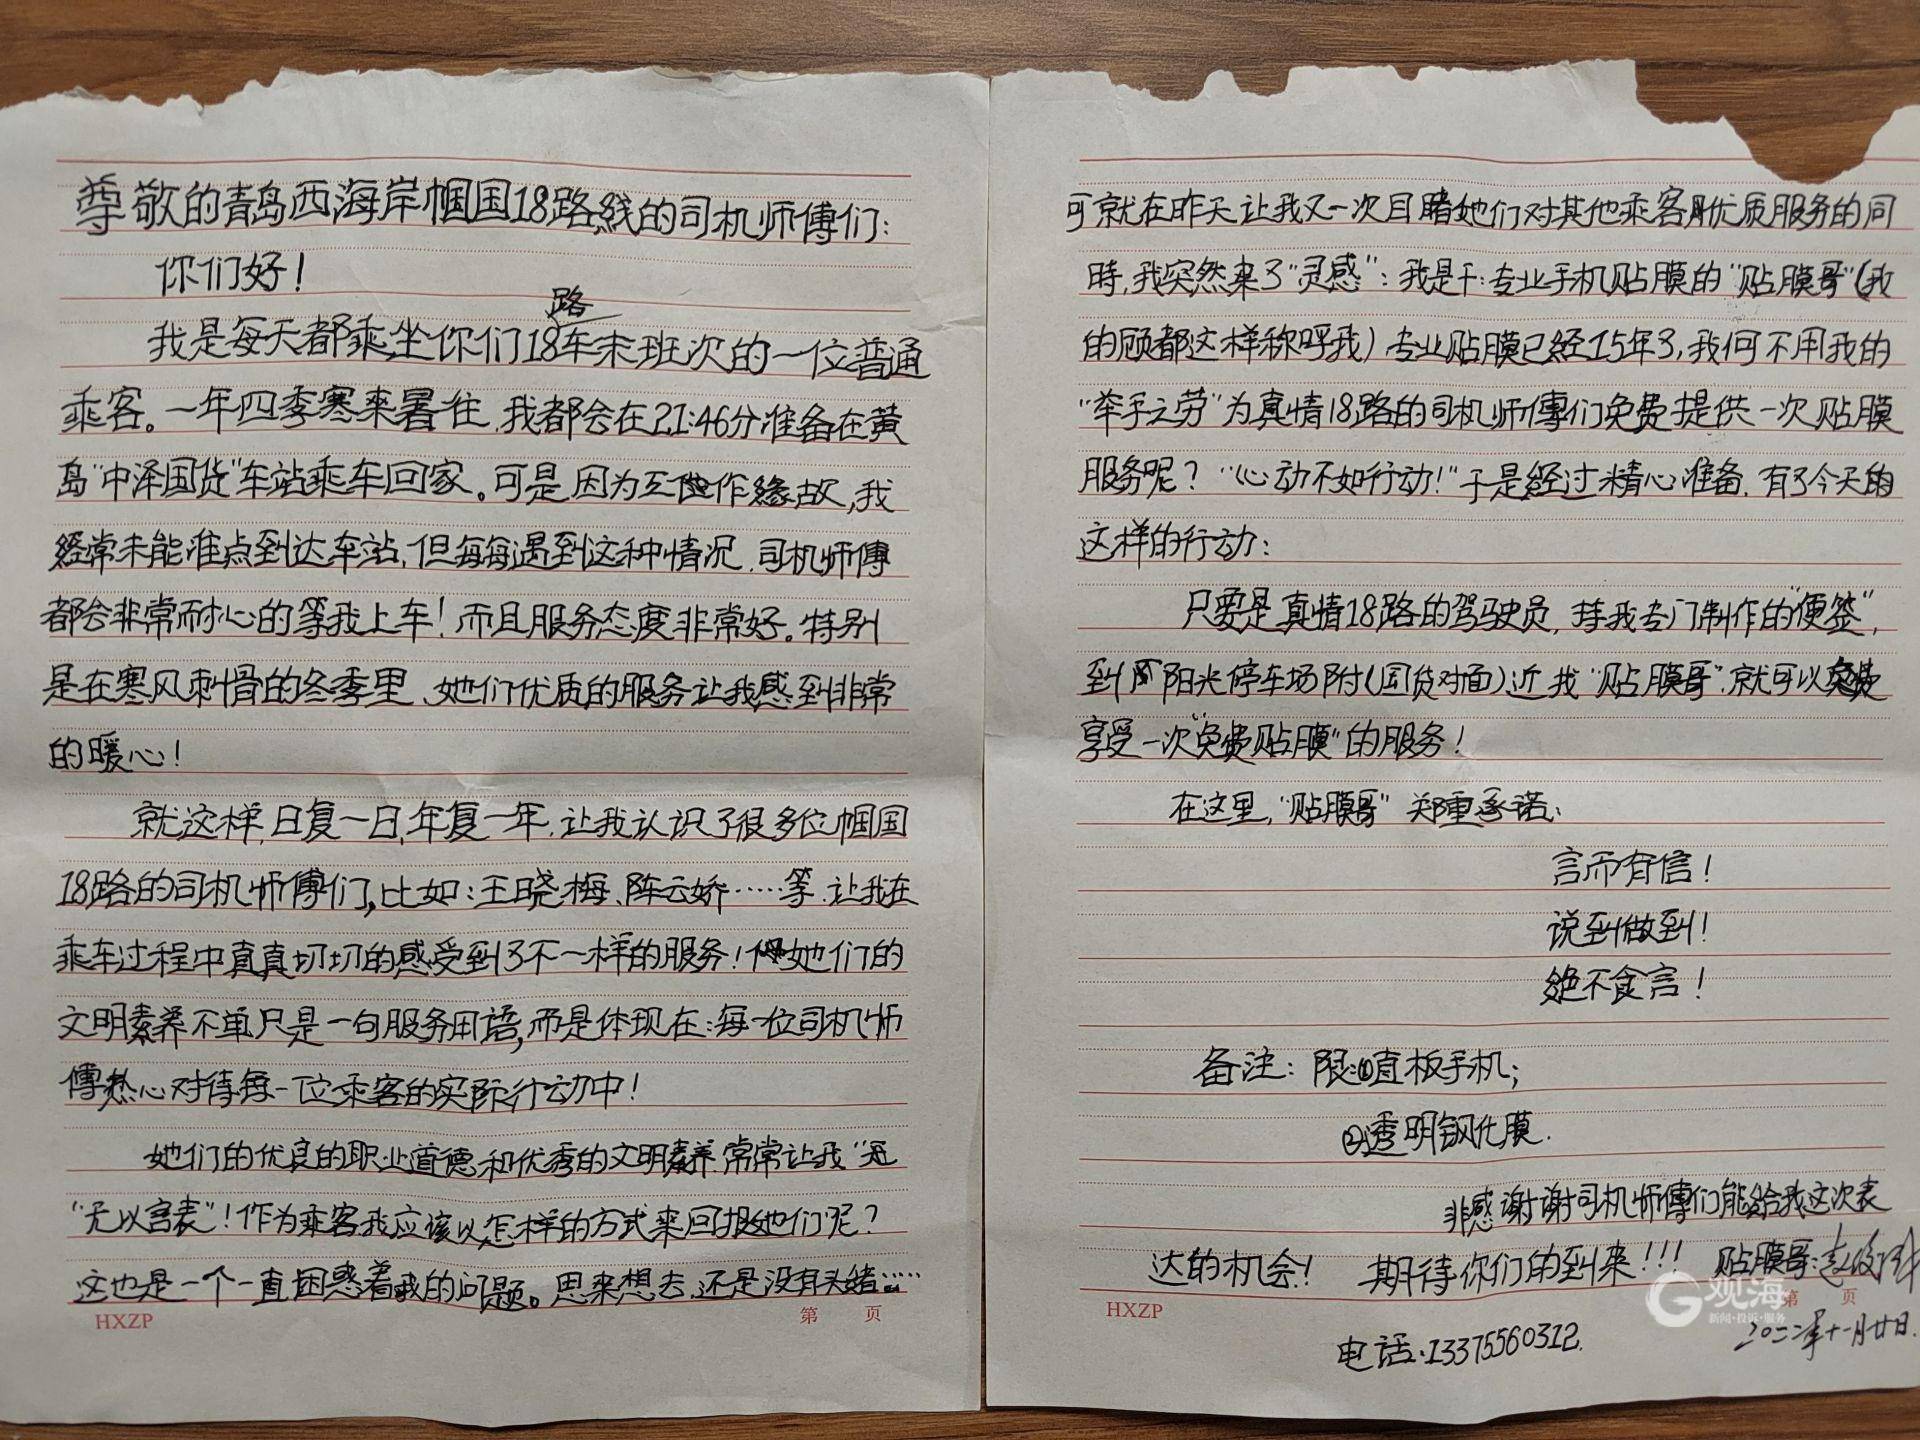 尊敬的青岛西海岸帼国18路线的司机师傅们:
你们好!
我是每天都乘坐你们18路车末班次的一位普通
乘客。一年四季寒来暑往,我都会在21:46分准备在黄
岛"中泽国货"车站乘车回家。可是因为工作缘故,我
经常未能准点到达车站,但每每遇到这种情况,司机师傅
都会非常耐心的等我上车!而且服务态度非常好。特别
是在寒风刺骨的冬季里、她们优质的服务让我感到非常
的暖心!
就这样,日复一日,年复一年,让我认识了很多位帼国
18路的司机师傅们,比如:王晓梅、陈云娇……等,让我在
乘车过程中真真切切的感受到了不一样的服务!她们的
文明素养不单只是一句服务用语,而是体现在:每一位司机师
傅热心对待每一位乘客的实际行动中!
她们的优良的职业道德和优秀的文明素养,常常让我"无
"无以言表"!作为乘客我应该以怎样的方式来回报她们呢?
这也是一个一直困惑着我的问题。思来想去,还是没有头绪……
HXZP
第 页
可就在昨天让我又一次目睹她们对其他乘客用优质服务的同
時,我突然来了"灵感":我是干:专业手机贴膜的"贴膜哥"(我
的顾都这样称呼我)专业贴膜已经15年了,我何不用我的
"举手之劳"为真情18路的司机师傅们免费提供一次贴膜
服务呢?"心动不如行动!"于是经过精心准备,有了今天的
这样的行动:
只要是真情18路的驾驶员,持我专门制作的"便签",
到阳光停车场附(国货对面)近找"贴膜哥",就可以免费
享受一次"免费贴膜"的服务!
在这里,"贴膜哥"郑重承诺:
言而有信!
说到做到!
绝不食言!
备注:限:①直板手机;
②透明钢化膜.
非感谢谢司机师傅们能给我这次表
达的机会! 期待你们的到来!!! 贴膜哥:
HXZP
第 页
观海
新闻·投诉·服务
二〇二二年十一月廿日.
电话:13375560312.